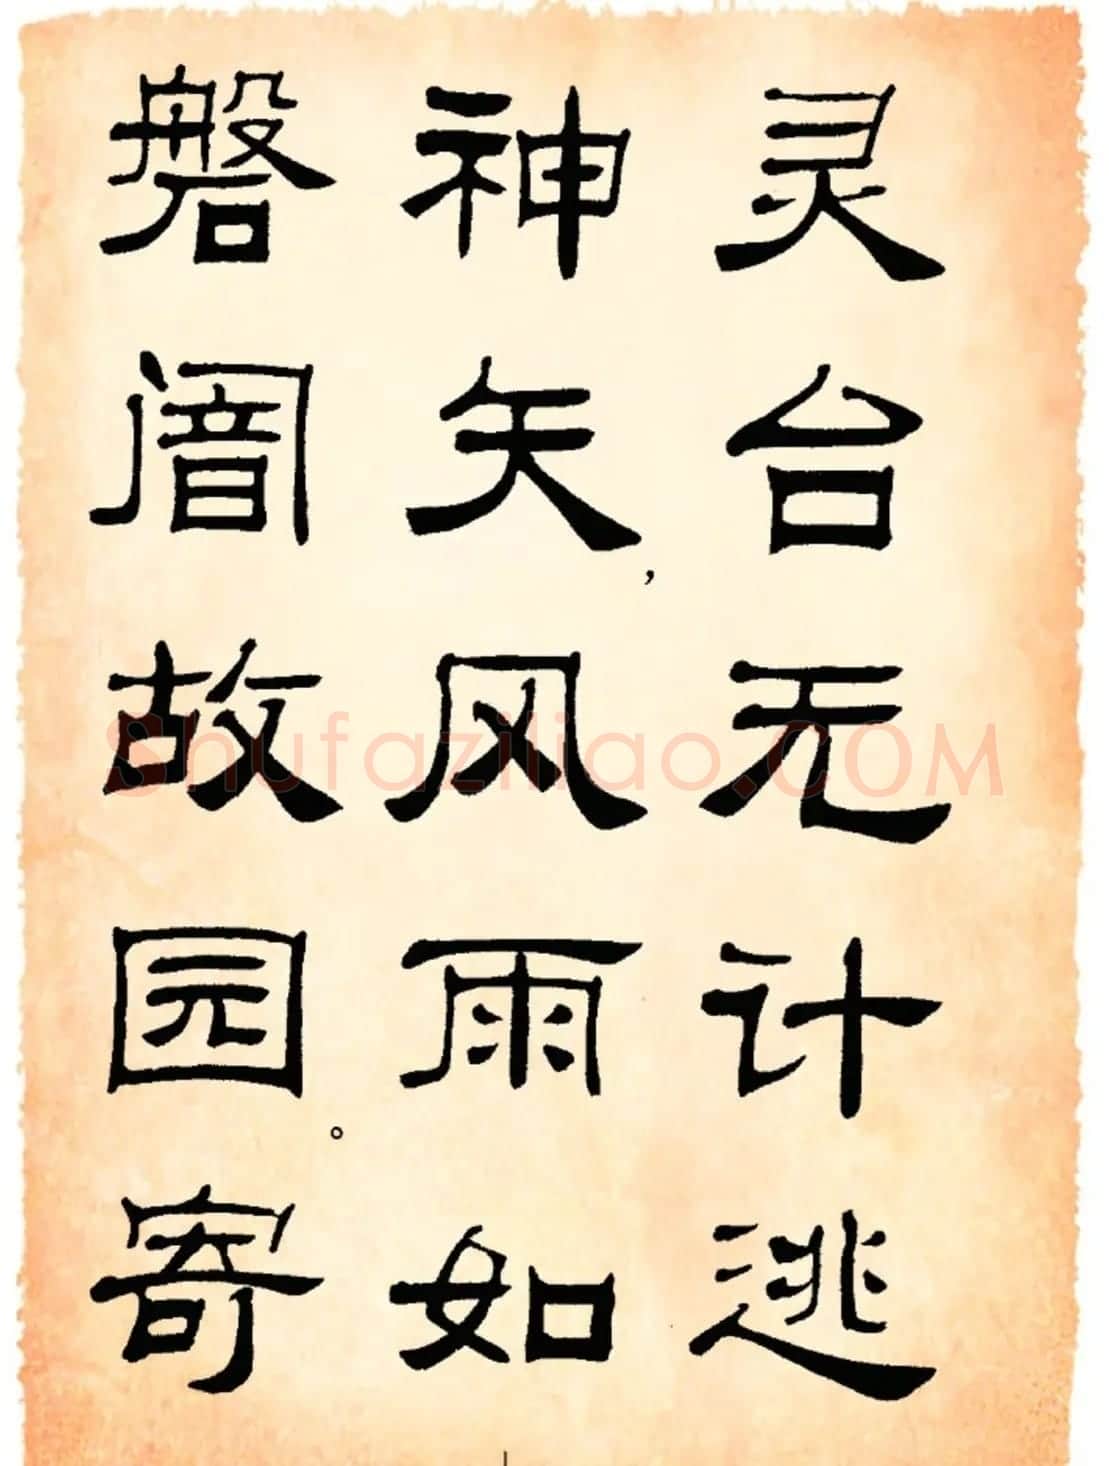 灵台无计逃
神矢，风雨如
磐闇故园。寄
Shufaziliao.COM